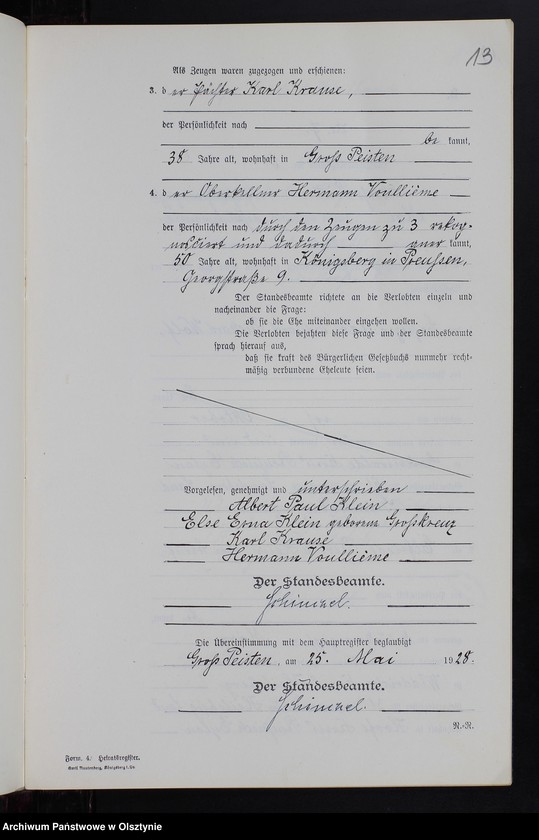 13
Als Zeugen waren zugezogen und erschienen:
3. d er Pächter Karl Krause,
der Persönlichkeit nach
be kannt,
38 Jahre alt, wohnhaft in Groß Peisten
4. d er Oberkellner Hermann Voullième
der Persönlichkeit nach durch den Zeugen zu 3 rekog-
nosciert und dadurch aner kannt,
50 Jahre alt, wohnhaft in Königsberg in Preussen,
Georgstraße 9.
Der Standesbeamte richtete an die Verlobten einzeln und
nacheinander die Frage:
ob sie die Ehe miteinander eingehen wollen.
Die Verlobten bejahten diese Frage und der Standesbeamte
sprach hierauf aus,
daß sie kraft des Bürgerlichen Gesetzbuchs nunmehr recht-
mäßig verbundene Eheleute seien.
Vorgelesen, genehmigt und unterschrieben
Albert Paul Klein
Else Erna Klein geborene Großkreuz
Karl Krause
Hermann Voullième
Der Standesbeamte.
Schimkel.
Die Übereinstimmung mit dem Hauptregister beglaubigt
Groß Peisten, am 25. Mai 1928.
Der Standesbeamte.
Schimkel.
N.-R.
Form. 4. Heiratsregister.
Königsberg i. Pr.
Archiwum Państwowe w Olsztynie